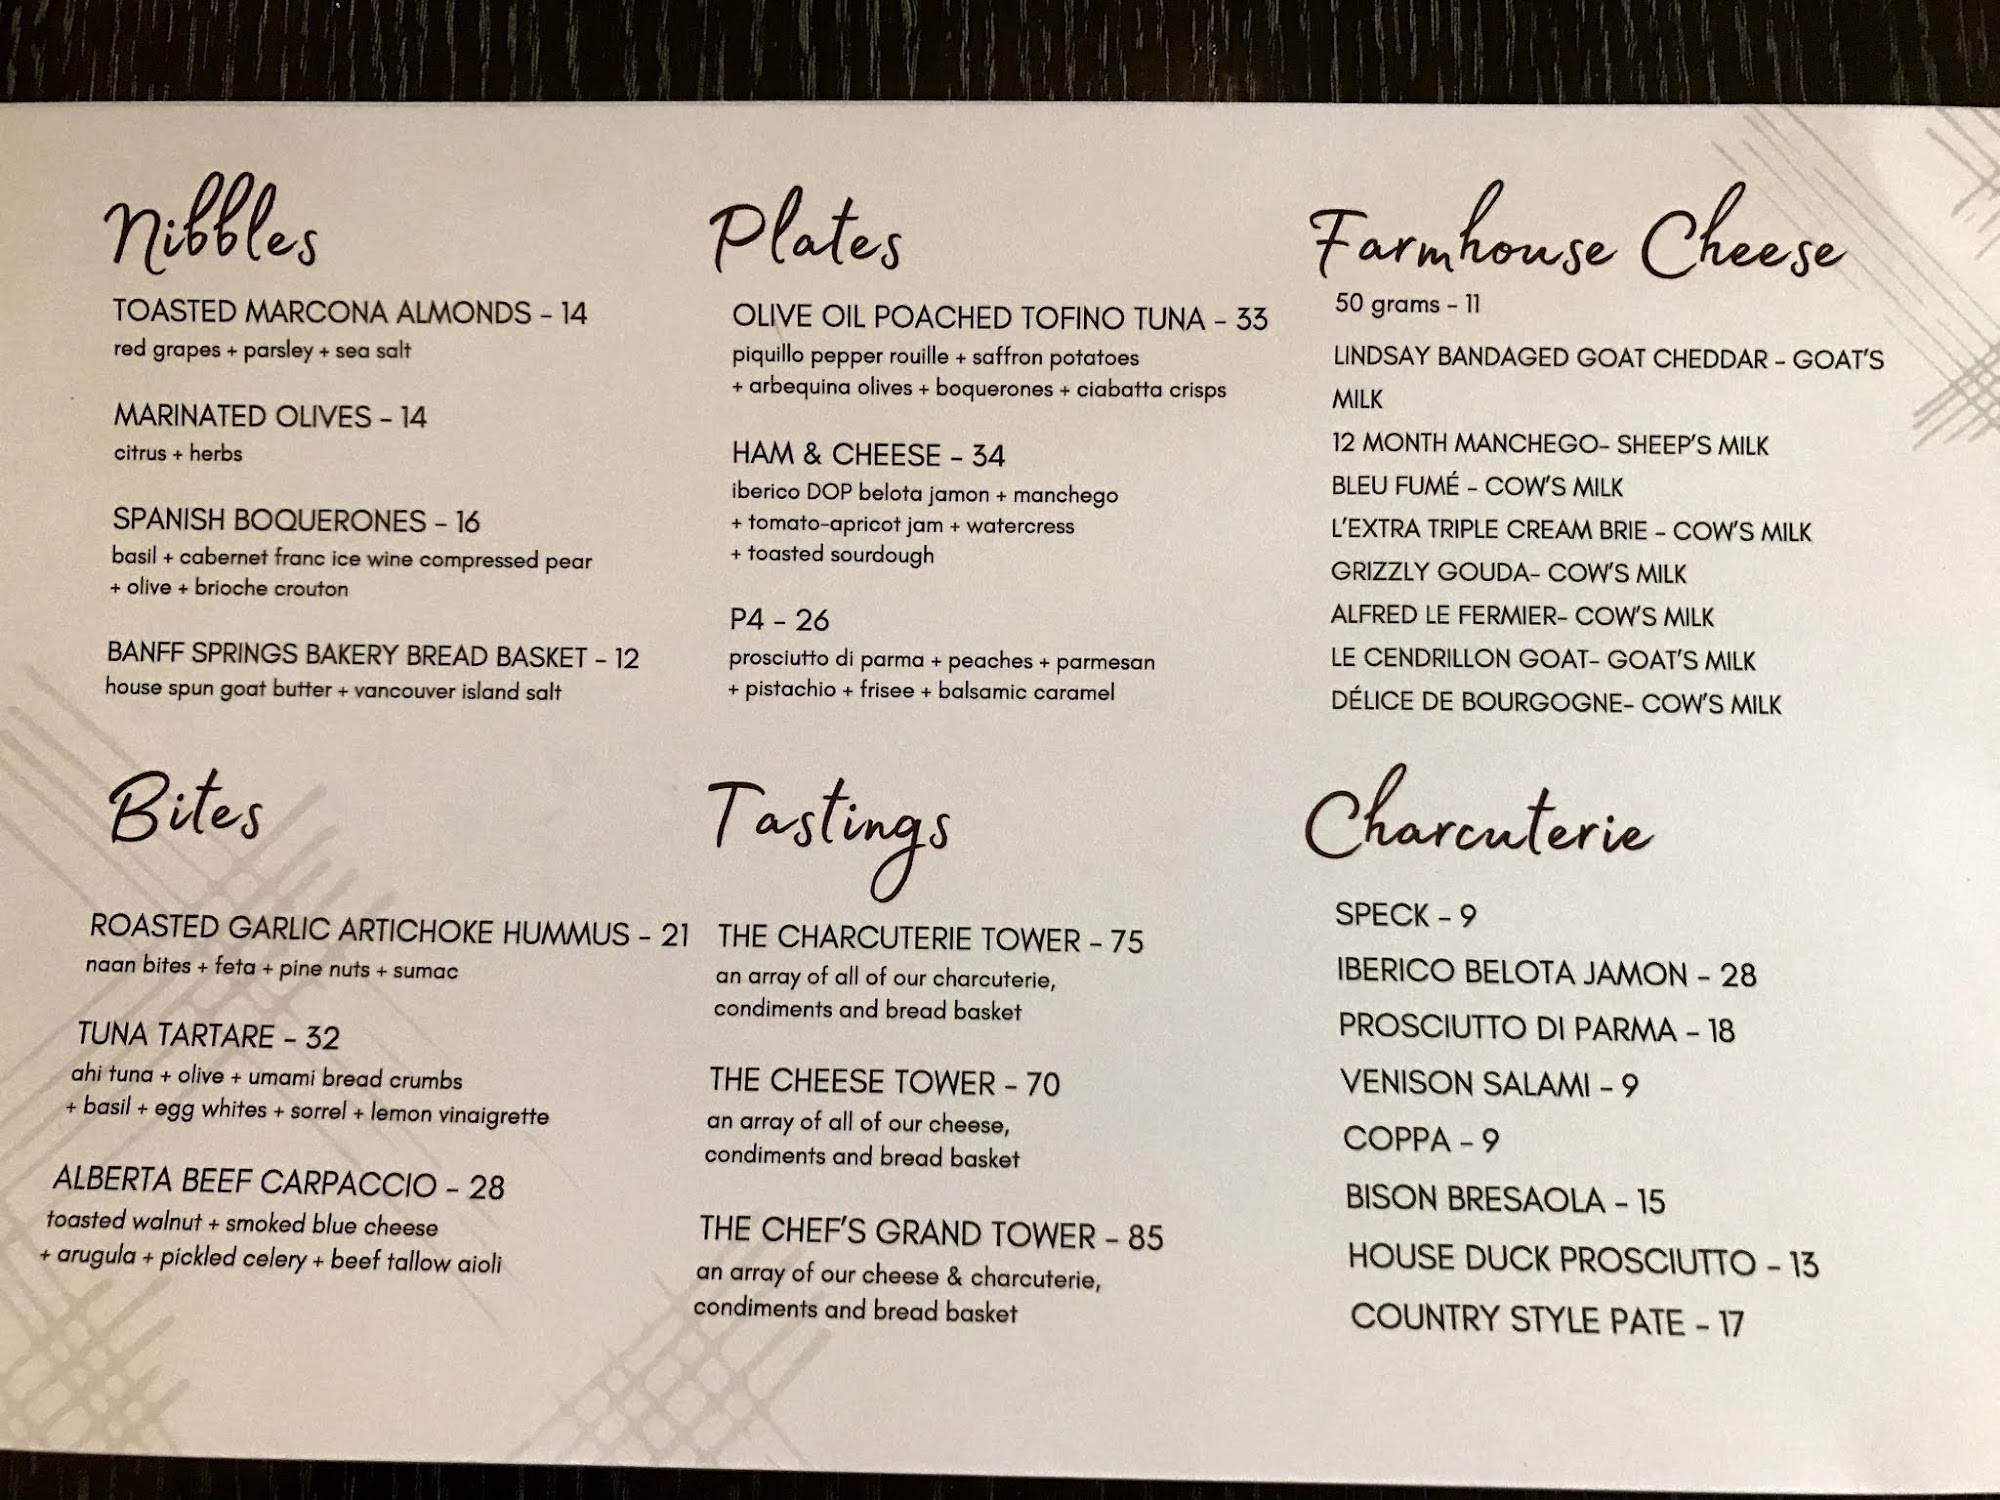 Nibbles
TOASTED MARCONA ALMONDS - 14
red grapes + parsley + sea salt
MARINATED OLIVES - 14
citrus + herbs
SPANISH BOQUERONES - 16
basil + cabernet franc ice wine compressed pear
+ olive + brioche crouton
BANFF SPRINGS BAKERY BREAD BASKET - 12
house spun goat butter + vancouver island salt
Bites
ROASTED GARLIC ARTICHOKE HUMMUS - 21
naan bites + feta + pine nuts + sumac
TUNA TARTARE - 32
ahi tuna + olive + umami bread crumbs
+ basil + egg whites + sorrel + lemon vinaigrette
ALBERTA BEEF CARPACCIO - 28
toasted walnut + smoked blue cheese
+ arugula + pickled celery + beef tallow aioli
Plates
OLIVE OIL POACHED TOFINO TUNA - 33
piquillo pepper rouille + saffron potatoes
+ arbequina olives + boquerones + ciabatta crisps
HAM & CHEESE - 34
iberico DOP belota jamon + manchego
+ tomato-apricot jam + watercress
+ toasted sourdough
P4 - 26
prosciutto di parma + peaches + parmesan
+ pistachio + frisee + balsamic caramel
Tastings
THE CHARCUTERIE TOWER - 75
an array of all of our charcuterie,
condiments and bread basket
THE CHEESE TOWER - 70
an array of all of our cheese,
condiments and bread basket
THE CHEF'S GRAND TOWER - 85
an array of our cheese & charcuterie,
condiments and bread basket
Farmhouse Cheese
50 grams - 11
LINDSAY BANDAGED GOAT CHEDDAR - GOAT'S
MILK
12 MONTH MANCHEGO- SHEEP'S MILK
BLEU FUMÉ - COW'S MILK
L'EXTRA TRIPLE CREAM BRIE - COW'S MILK
GRIZZLY GOUDA- COW'S MILK
ALFRED LE FERMIER- COW'S MILK
LE CENDRILLON GOAT- GOAT'S MILK
DÉLICE DE BOURGOGNE- COW'S MILK
Charcuterie
SPECK - 9
IBERICO BELOTA JAMON - 28
PROSCIUTTO DI PARMA - 18
VENISON SALAMI - 9
COPPA - 9
BISON BRESAOLA - 15
HOUSE DUCK PROSCIUTTO - 13
COUNTRY STYLE PATE - 17